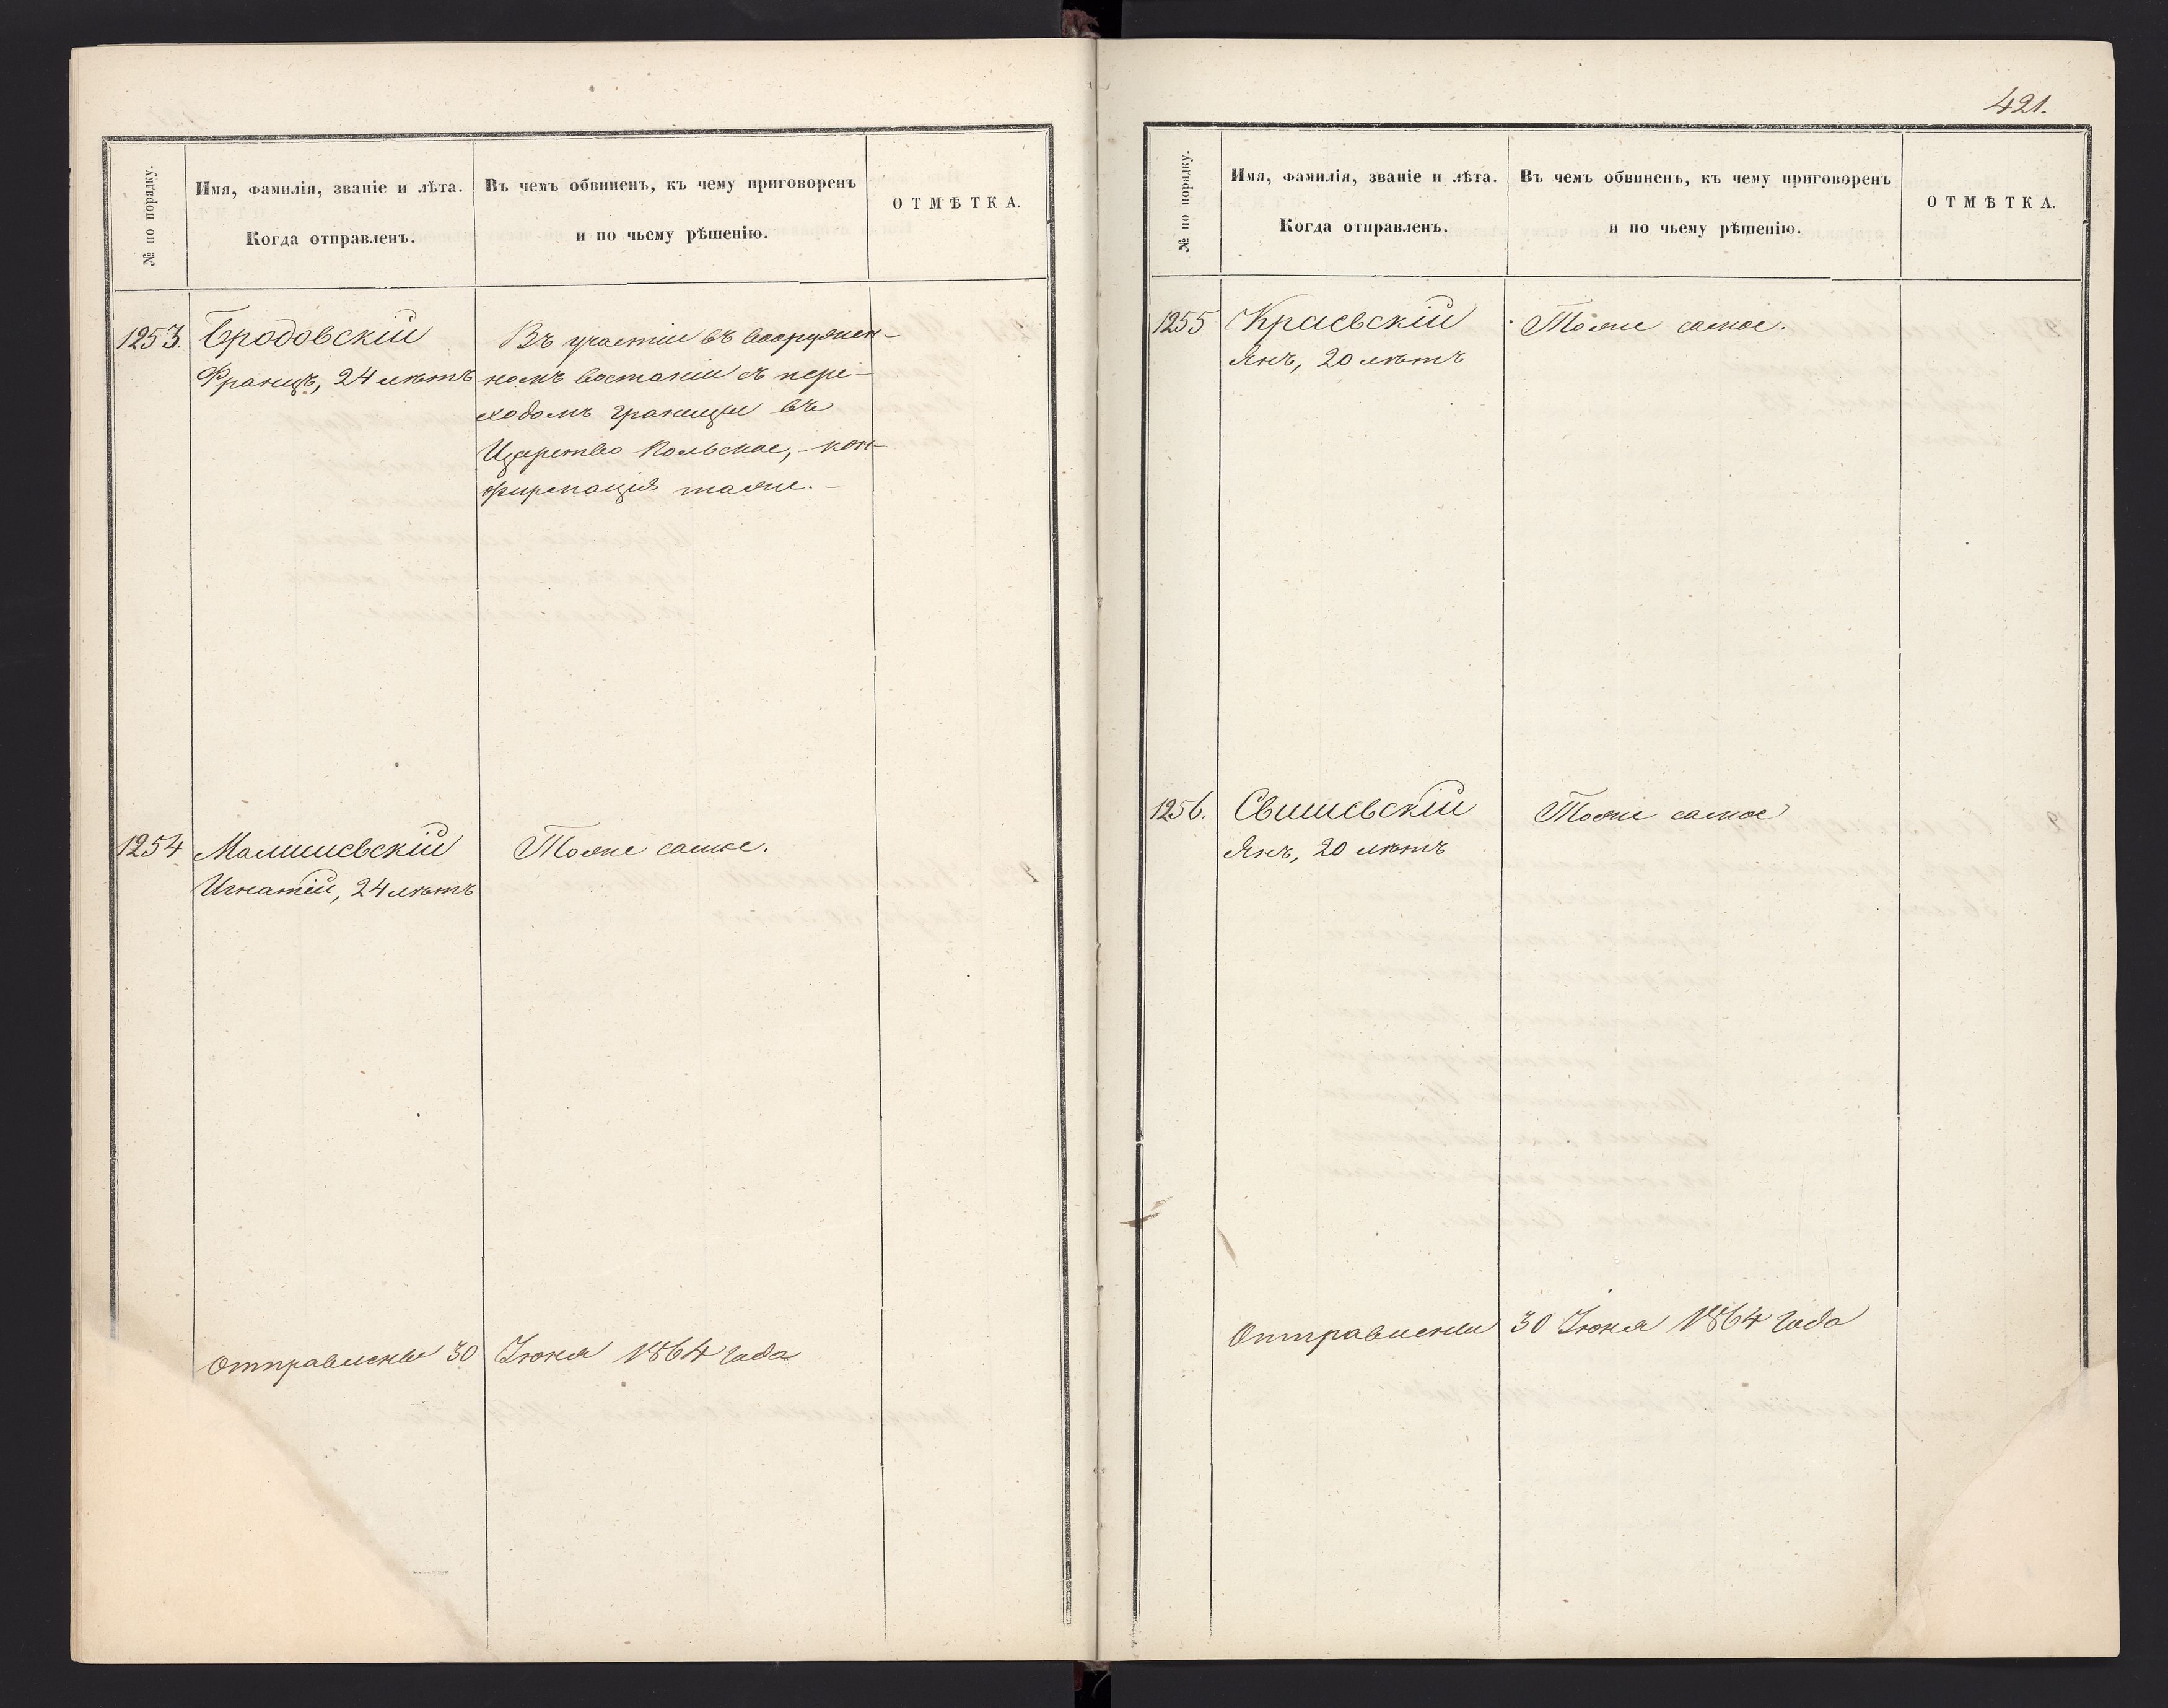 № по порядку.
Имя, фамилія, званіе и лѣта.
Когда отправленъ.
Въ чемъ обвиненъ, къ чему приговоренъ
и по чьему рѣшенію.
ОТМѢТКА.
1253. Бродовскій
Францъ, 24 лѣтъ
Въ участіи въ вооружен-
номъ востаніи съ пере-
ходомъ границы въ
Царство Польское, - кон-
фирмація таже. -
1254 Малишевскій
Игнатій, 24 лѣтъ
Тоже самое.
Отправлены 30 Іюня 1864 года
421.
№ по порядку.
Имя, фамилія, званіе и лѣта.
Когда отправленъ.
Въ чемъ обвиненъ, къ чему приговоренъ
и по чьему рѣшенію.
ОТМѢТКА.
1255 Краевскій
Янъ, 20 лѣтъ
Тоже самое.
1256. Свишевскій
Янъ, 20 лѣтъ
Тоже самое
Отправлены 30 Іюня 1864 года